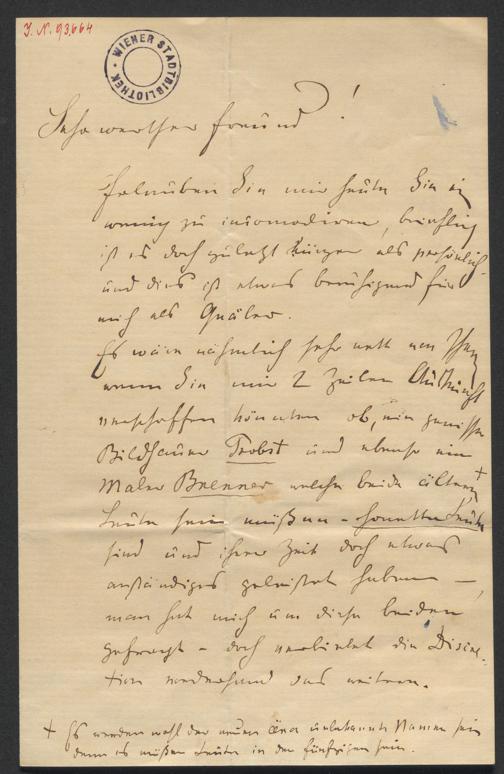 I. N. 93.664
WIENER STADTBIBLIOTHEK
Sehr werther Freund!
Erlauben Sie mir heute Sie ein
wenig zu incomodiren, brieflich
ist es doch zuletzt kürzer als persönlich
und dies ist etwas beruhigend für
mich als Quäler.
Es wäre nähmlich sehr nett von Ihnen
wenn Sie mir 2 Zeilen Auskunft
verschaffen könnten ob, ein gewisser
Bildhauer Probst und ebenso ein
Maler Brenner welche beide ältere +
Leute sein müßen – honette Leute
sind und ihrer Zeit doch etwas
anständiges geleistet haben –,
man hat mich um diese beiden
gefragt – doch verbietet die Discre-
tion vorderhand das weitere.
+ Es werden wohl der neuen Aera unbekannte Namen sein
denn es müßen Leute in den fünfzigen sein.